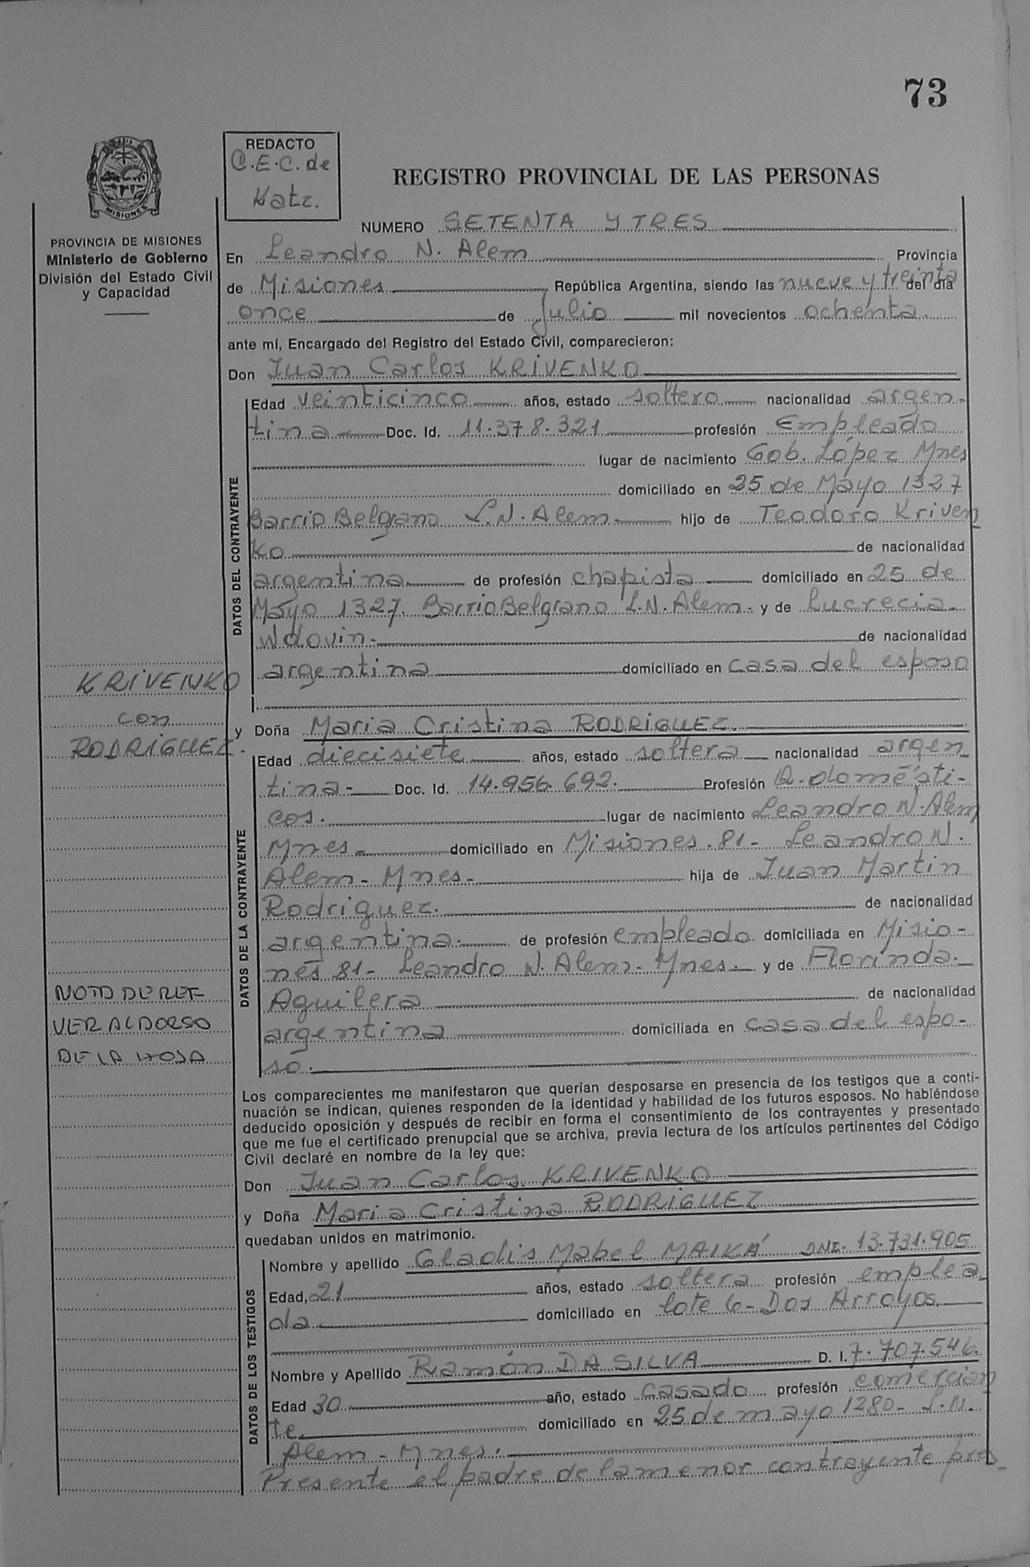 73
REDACTO
C.E.C. de
Matr.
REGISTRO PROVINCIAL DE LAS PERSONAS
NUMERO SETENTA Y TRES
MISIONES
PROVINCIA DE MISIONES
Ministerio de Gobierno
División del Estado Civil
y Capacidad
En Leandro N. Alem Provincia
de Misiones República Argentina, siendo las nueve y treinta del día
once de Julio mil novecientos ochenta.
ante mí, Encargado del Registro del Estado Civil, comparecieron:
Don Juan Carlos KRIVENKO
DATOS DEL CONTRAYENTE
Edad veinticinco años, estado soltero nacionalidad argen-
tina Doc. Id. 11.378.321 profesión Empleado
lugar de nacimiento Gob. López Mnes
domiciliado en 25 de Mayo 1327
Barrio Belgrano L.N. Alem. hijo de Teodoro Kriven
ko de nacionalidad
argentina de profesión chapista domiciliado en 25 de
Mayo 1327 Barrio Belgrano L.N. Alem. y de Lucrecia
Wdovin. de nacionalidad
argentina domiciliado en casa del esposo
KRIVENKO
con
RODRIGUEZ.
y Doña Maria Cristina RODRIGUEZ.
DATOS DE LA CONTRAYENTE
Edad diecisiete años, estado soltera nacionalidad argen
tina- Doc. Id. 14.956.692. Profesión Q. domésti-
cos. lugar de nacimiento Leandro N. Alem
Mnes. domiciliado en Misiones 81- Leandro N.
Alem- Mnes- hija de Juan Martin
Rodriguez. de nacionalidad
argentina. de profesión empleado domiciliada en Misio-
nes 81- Leandro N. Alem- Mnes. y de Florinda.
Aguilera de nacionalidad
argentina domiciliada en casa del espo-
so.
NOTA DE REF
VER AL DORSO
DE LA HOJA
Los comparecientes me manifestaron que querían desposarse en presencia de los testigos que a conti-
nuación se indican, quienes responden de la identidad y habilidad de los futuros esposos. No habiéndose
deducido oposición y después de recibir en forma el consentimiento de los contrayentes y presentado
que me fue el certificado prenupcial que se archiva, previa lectura de los artículos pertinentes del Código
Civil declaré en nombre de la ley que:
Don Juan Carlos KRIVENKO
y Doña Maria Cristina RODRIGUEZ
quedaban unidos en matrimonio.
DATOS DE LOS TESTIGOS
Nombre y apellido Gladis Mabel MAIKÁ DNI. 13.731.905
Edad, 21 años, estado soltera profesión emplea
da domiciliado en lote 6- Dos Arroyos.
Nombre y Apellido Ramón DA SILVA D. I. 7.707.546.
Edad 30 año, estado casado profesión comercian
te. domiciliado en 25 de mayo 1280- L.N.
Alem- Mnes.
Presente el padre de la menor contrayente pres_